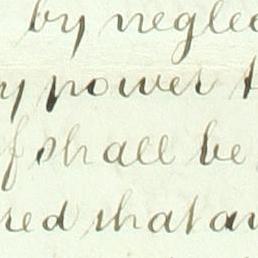 by neglec
y power t
f shall be
red that an